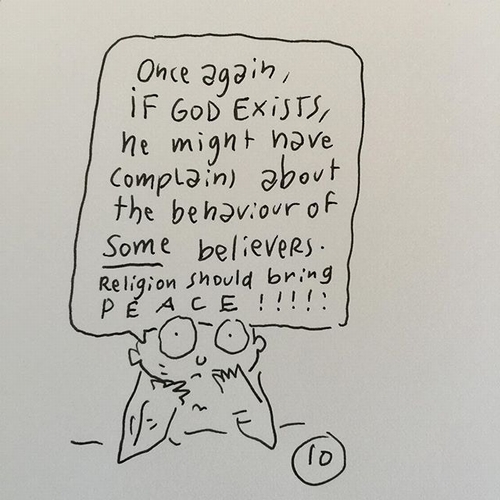 Once again,
iF GOD EXISTS,
he might have
complains about
the behaviour of
some believers.
Religion should bring
PEACE !!!!!
10